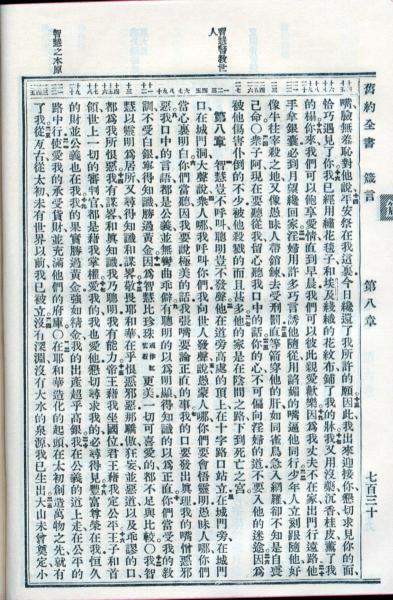 舊約全書 箴言 第八章 七百三十
智慧警教世人
智慧之本原
嘴臉無羞恥對他說平安祭在我這裏今日纔還了我所許的願因此我出來迎接你懇切求見你的面
恰巧遇見了你我已經用繡花毯子和埃及綫織的花紋布鋪了我的牀我又用沒藥沉香桂皮薰了我
的榻你來我們可以飽享愛情直到早晨我們可以彼此親愛歡樂因爲我丈夫不在家出門行遠路他
手拿銀囊必到月望纔回家淫婦用許多巧言誘他隨從用諂媚的嘴逼他同行少年人立刻跟隨他好
像牛往宰殺之地又像愚昧人帶鎖鍊去受刑罰直等箭穿他的肝如同雀鳥急入網羅卻不知是自喪
己命○衆子阿現在要聽從我留心聽我口中的話你的心不可偏向淫婦的道不要入他的迷途因爲
被他傷害仆倒的不少被他殺戮的而且甚多他的家是在陰間之路下到死亡之宮
第八章 智慧豈不呼叫聰明豈不發聲他在道旁高處的頂上在十字路口站立在城門旁在城門
口在城門洞大聲說衆人哪我呼叫你們我向世人發聲說愚蒙人哪你們要會悟靈明愚昧人哪你們
當心裏明白你們當聽因我要說極美的話我張嘴要論正直的事我的口要發出真理我的嘴憎惡邪
惡我口中的言語都是公義並無彎曲乖僻有聰明的以爲明顯得知識的以爲正直你們當受我的教
訓不受白銀寧得知識勝過黃金因爲智慧比珍珠更美一切可喜愛的都不足與比較○我智
慧以靈明爲居所又尋得知識和謀略敬畏耶和華在乎恨惡邪惡那驕傲狂妄並惡道以及乖謬的口
都爲我所恨惡我有謀略和真知識我乃聰明我有能力帝王藉我坐國位君王藉我定公平王子和首
領世上一切的審判官都是藉我掌權愛我的我也愛他懇切尋求我的必尋得見豐富尊榮在我恒久
的財並公義也在我我的果實勝過黃金強如精金我的出產超乎高銀我在公義的道上走在公平的
路中行使愛我的承受貨財並充滿他們的府庫○耶和華造化的起頭在太初創造萬物之先就有
了我從亙古從太初未有世界以前我已被立沒有深淵沒有大水的泉源我已生出大山未曾奠定小